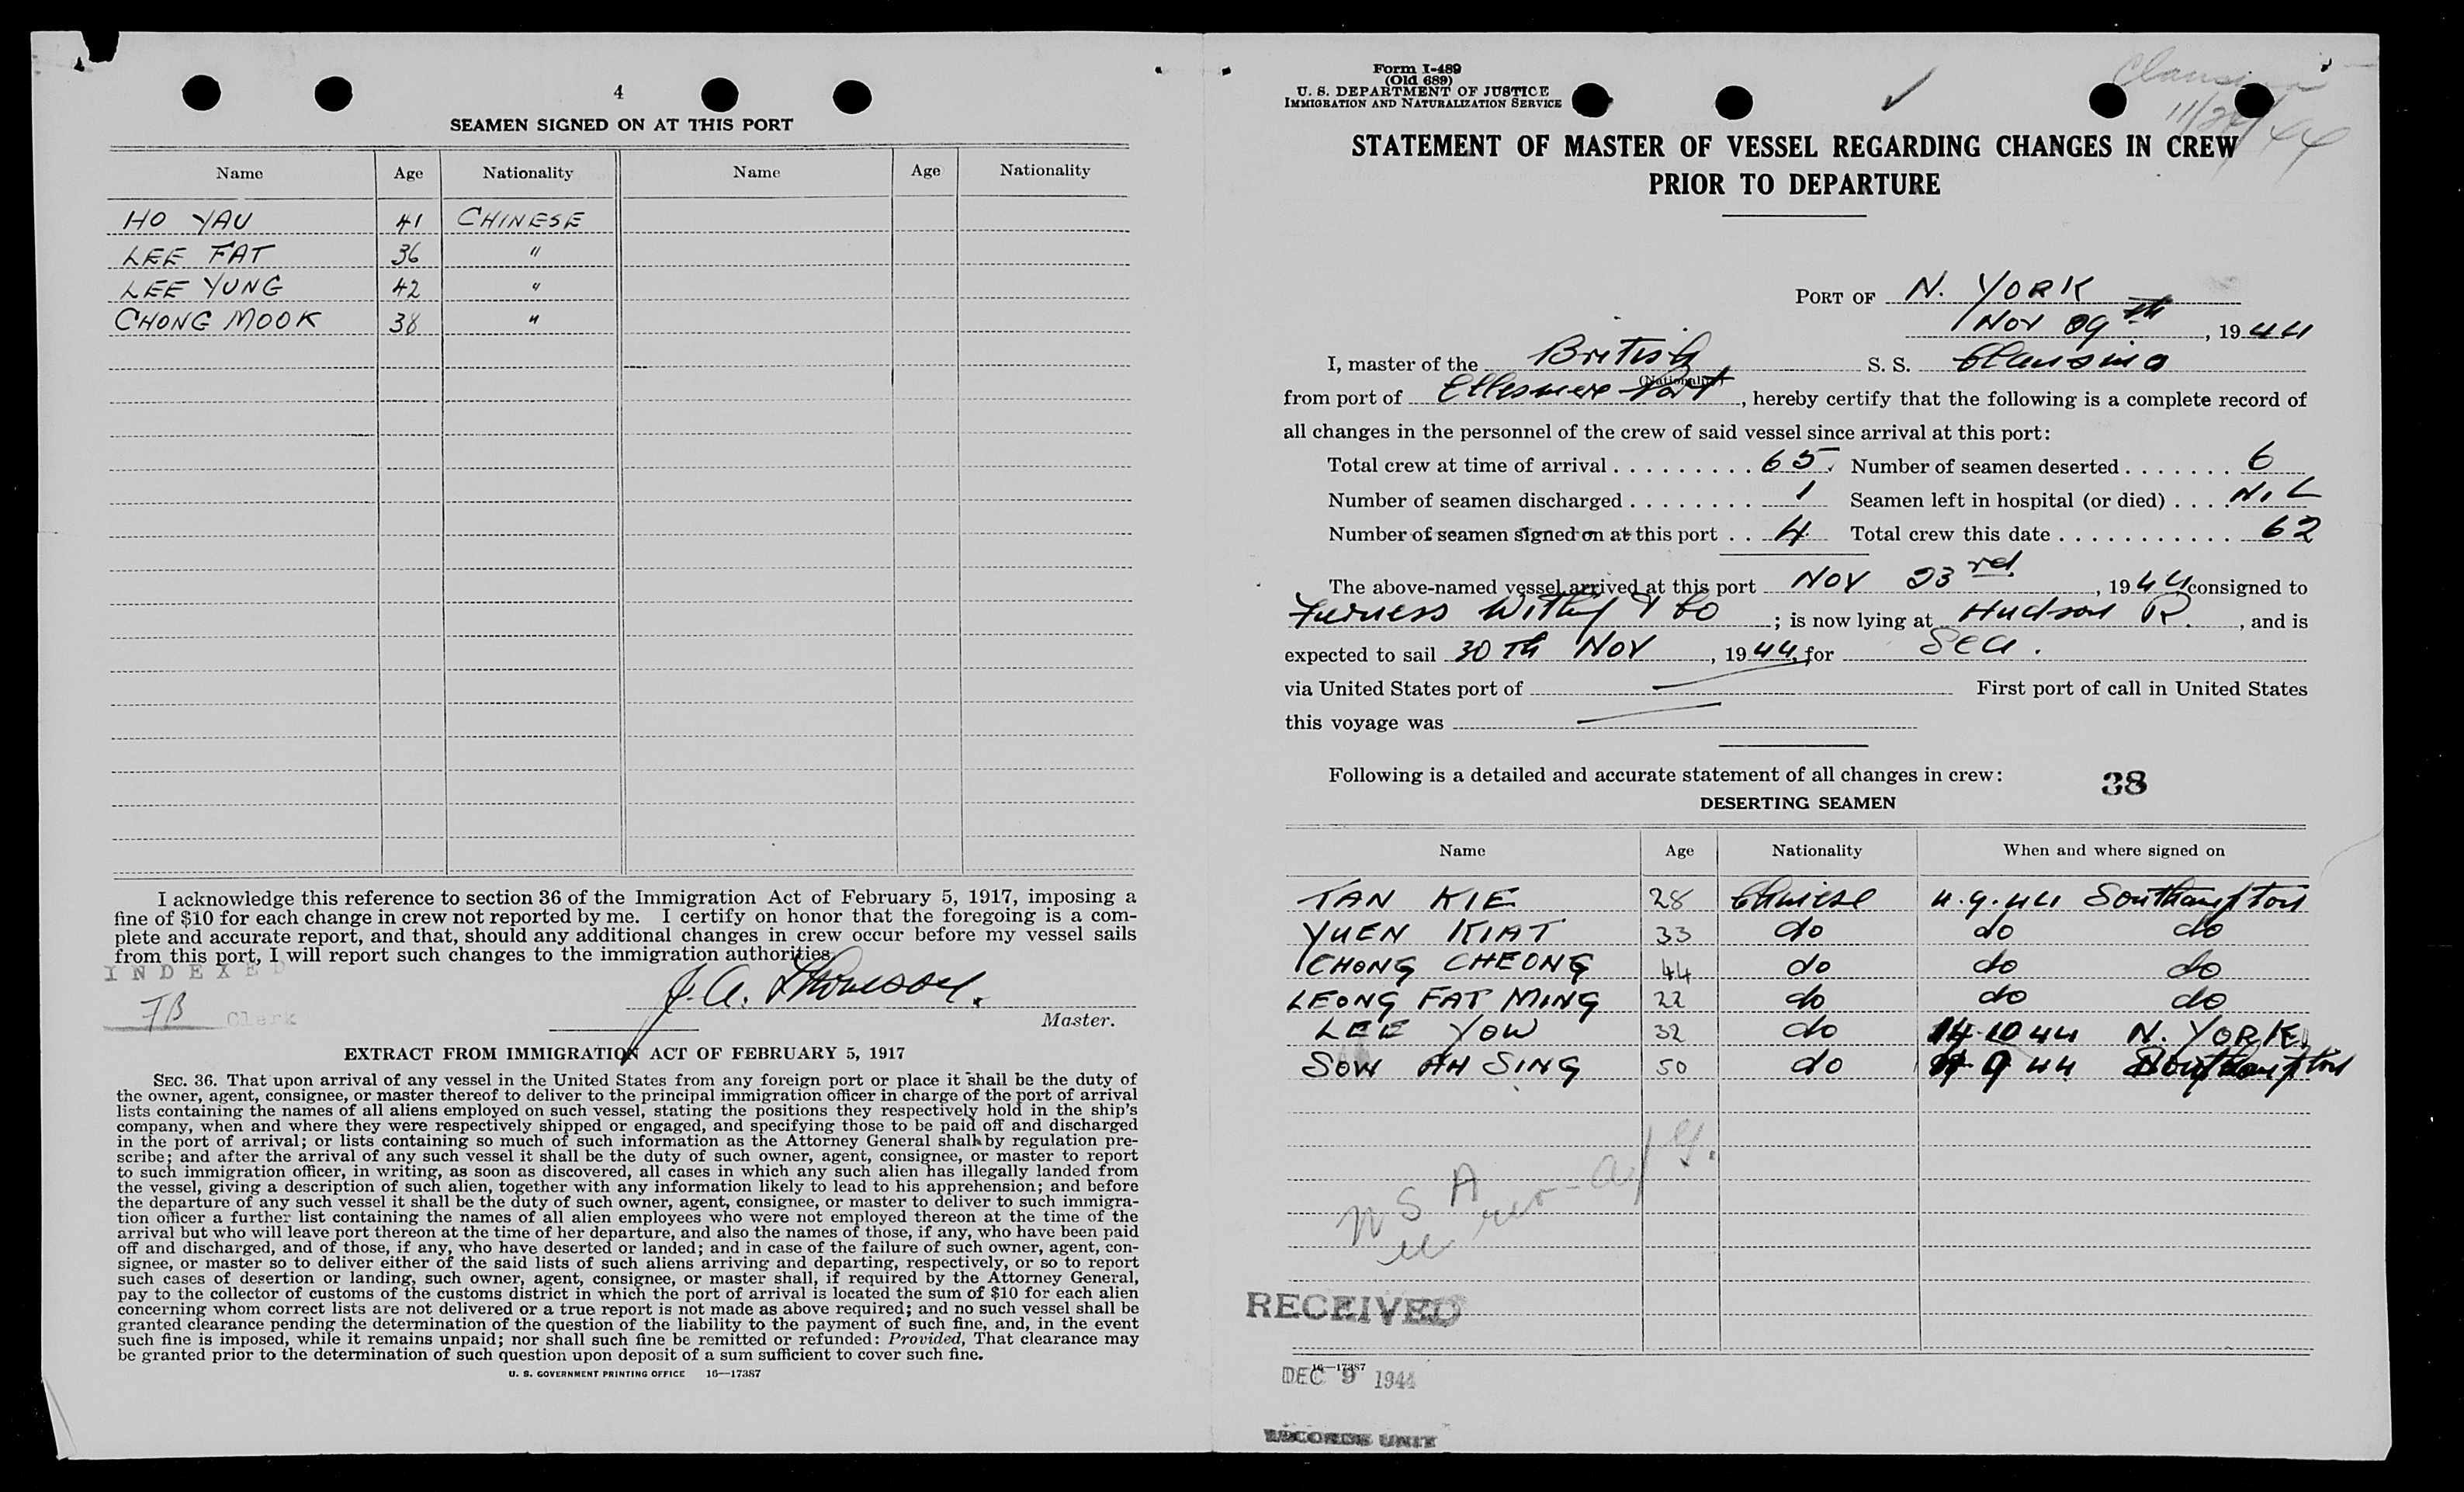 4
SEAMEN SIGNED ON AT THIS PORT
Name Age Nationality Name Age Nationality
HO YAU 41 CHINESE
LEE FAT 36 "
LEE YUNG 42 "
CHONG MOOK 38 "
I acknowledge this reference to section 36 of the Immigration Act of February 5, 1917, imposing a
fine of $10 for each change in crew not reported by me. I certify on honor that the foregoing is a com-
plete and accurate report, and that, should any additional changes in crew occur before my vessel sails
from this port, I will report such changes to the immigration authorities.
INDEXED
J.A. Thomson.
JB Clerk
Master.
EXTRACT FROM IMMIGRATION ACT OF FEBRUARY 5, 1917
SEC. 36. That upon arrival of any vessel in the United States from any foreign port or place it shall be the duty of
the owner, agent, consignee, or master thereof to deliver to the principal immigration officer in charge of the port of arrival
lists containing the names of all aliens employed on such vessel, stating the positions they respectively hold in the ship's
company, when and where they were respectively shipped or engaged, and specifying those to be paid off and discharged
in the port of arrival; or lists containing so much of such information as the Attorney General shall by regulation pre-
scribe; and after the arrival of any such vessel it shall be the duty of such owner, agent, consignee, or master to report
to such immigration officer, in writing, as soon as discovered, all cases in which any such alien has illegally landed from
the vessel, giving a description of such alien, together with any information likely to lead to his apprehension; and before
the departure of any such vessel it shall be the duty of such owner, agent, consignee, or master to deliver to such immigra-
tion officer a further list containing the names of all alien employees who were not employed thereon at the time of the
arrival but who will leave port thereon at the time of her departure, and also the names of those, if any, who have been paid
off and discharged, and of those, if any, who have deserted or landed; and in case of the failure of such owner, agent, con-
signee, or master so to deliver either of the said lists of such aliens arriving and departing, respectively, or so to report
such cases of desertion or landing, such owner, agent, consignee, or master shall, if required by the Attorney General,
pay to the collector of customs of the customs district in which the port of arrival is located the sum of $10 for each alien
concerning whom correct lists are not delivered or a true report is not made as above required; and no such vessel shall be
granted clearance pending the determination of the question of the liability to the payment of such fine, and, in the event
such fine is imposed, while it remains unpaid; nor shall such fine be remitted or refunded: Provided, That clearance may
be granted prior to the determination of such question upon deposit of a sum sufficient to cover such fine.
U. S. GOVERNMENT PRINTING OFFICE 16—17387
Form I-489
(Old 689)
U. S. DEPARTMENT OF JUSTICE
IMMIGRATION AND NATURALIZATION SERVICE
STATEMENT OF MASTER OF VESSEL REGARDING CHANGES IN CREW
PRIOR TO DEPARTURE
PORT OF N. YORK
Nov 29th, 1944
I, master of the British S. S. Clausina
(Nationality)
from port of Ellesmere Port, hereby certify that the following is a complete record of
all changes in the personnel of the crew of said vessel since arrival at this port:
Total crew at time of arrival 65 Number of seamen deserted 6
Number of seamen discharged 1 Seamen left in hospital (or died) NiL
Number of seamen signed on at this port 4 Total crew this date 62
The above-named vessel arrived at this port Nov 23rd, 1944 consigned to
Furness Withy & Co; is now lying at Hudson R., and is
expected to sail 30th Nov, 1944, for Sea.
via United States port of — First port of call in United States
this voyage was —
Following is a detailed and accurate statement of all changes in crew:
38
DESERTING SEAMEN
Name Age Nationality When and where signed on
TAN KIE 28 Chinese 4.9.44 Southampton
YUEN KIAT 33 do do do
CHONG CHEONG 44 do do do
LEONG FAT MING 22 do do do
LEE YOW 32 do 14.10 44 N. YORK
SOW AH SING 50 do 4 9 44 Southampton
RECEIVED
16—17387
DEC 9 1944
RECORDS UNIT